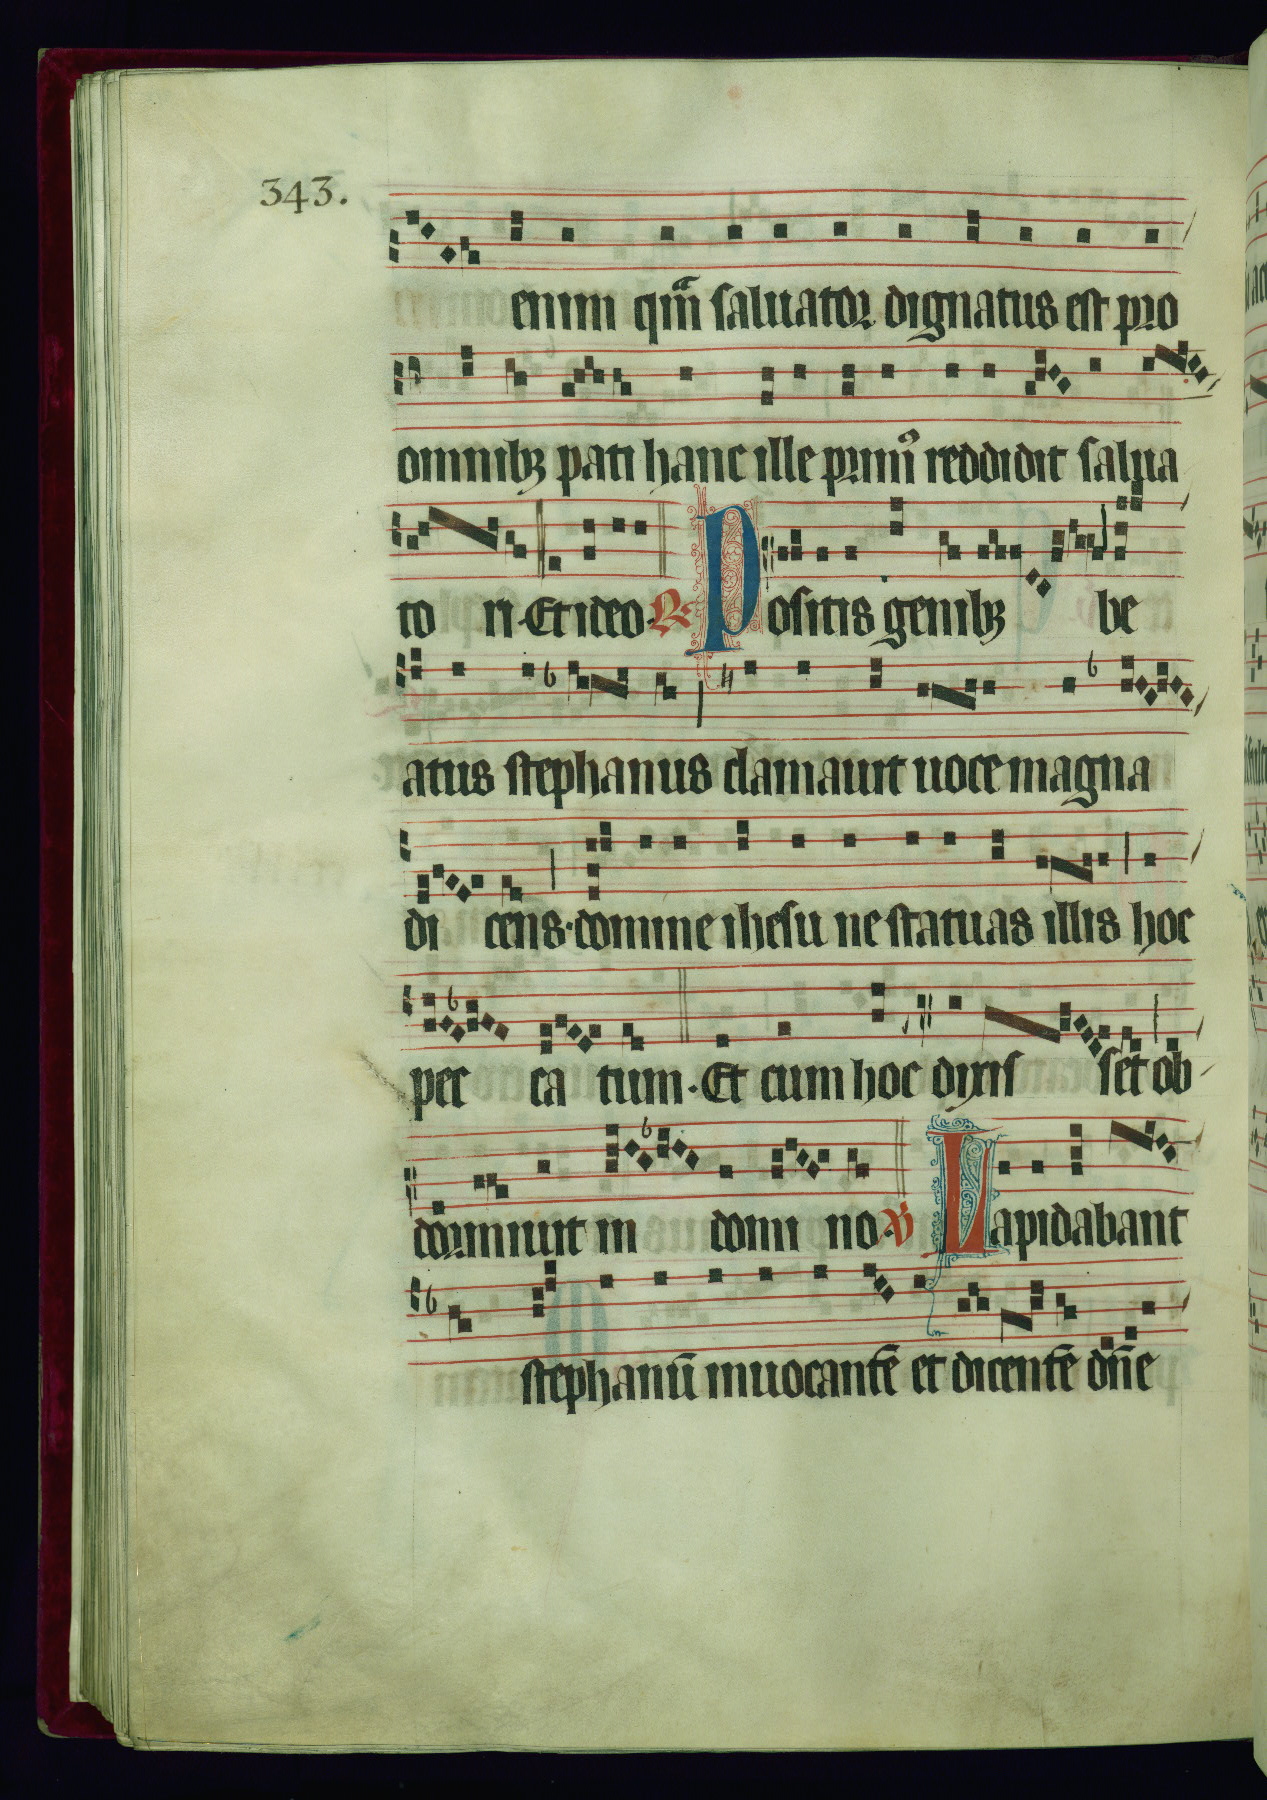 343.
enim qm̄ saluator dignatus est pro
omnibꝫ pati hanc ille primꝰ reddidit salua
to ri · Et ideo · ℟ Positis genibꝫ be
atus stephanus clamauit uoce magna
di cens · domine ihesu ne statuas illis hoc
pec ca tum · Et cum hoc dixis set ob
dormiuit in domi no · ℣ Lapidabant
stephanū inuocantē et dicentē dn̄e